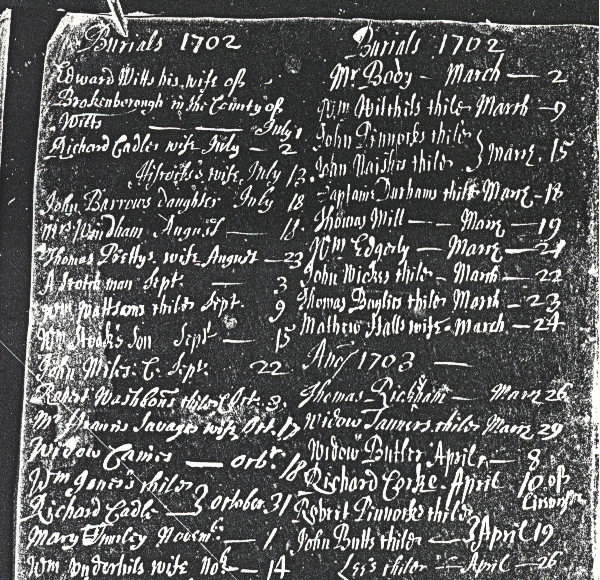 Burials 1702
Edward Witts his wife of
Brokenborough in the County of
Witts — July 1
Richard Cadles wife July — 2
wife July 13
John Barrows daughter July 18
Mrs Windham August — 18
Thomas Prettys wife August — 23
A Scotchman Sept. — 3
Wm Wattsons childe Sept. 9
Wm Son Sept — 15
John Miles C. Sept. 22
Robert Washbons childe Octr. 8.
Mr Francis Savages wife Oct. 17
Widow — Octbr. 18
Wm Jones's childe
Richard Cadle — } October. 31
Mary Novemb. — 1
Wm Underhils wife Nob — 14
Burials 1702
Mr Body — March — 2
Wm childe March — 9
John Pinnocks childe
John childe } March. 15
Captaine Durhams childe March — 18
Thomas Will — March — 19
Wm Edgerly — March — 21
John Wickes childe — March — 22
Thomas Baylies childe March — 23
Mathew Halls wife — March — 24
Ano 1703 —
Thomas Rickham — March 26
Widow Tanners childe March 29
Widow Butler April — 8
Richard Corke April 10 of
Robert Pinnocks childe
John Butts childe — } April 19
childe — April — 26